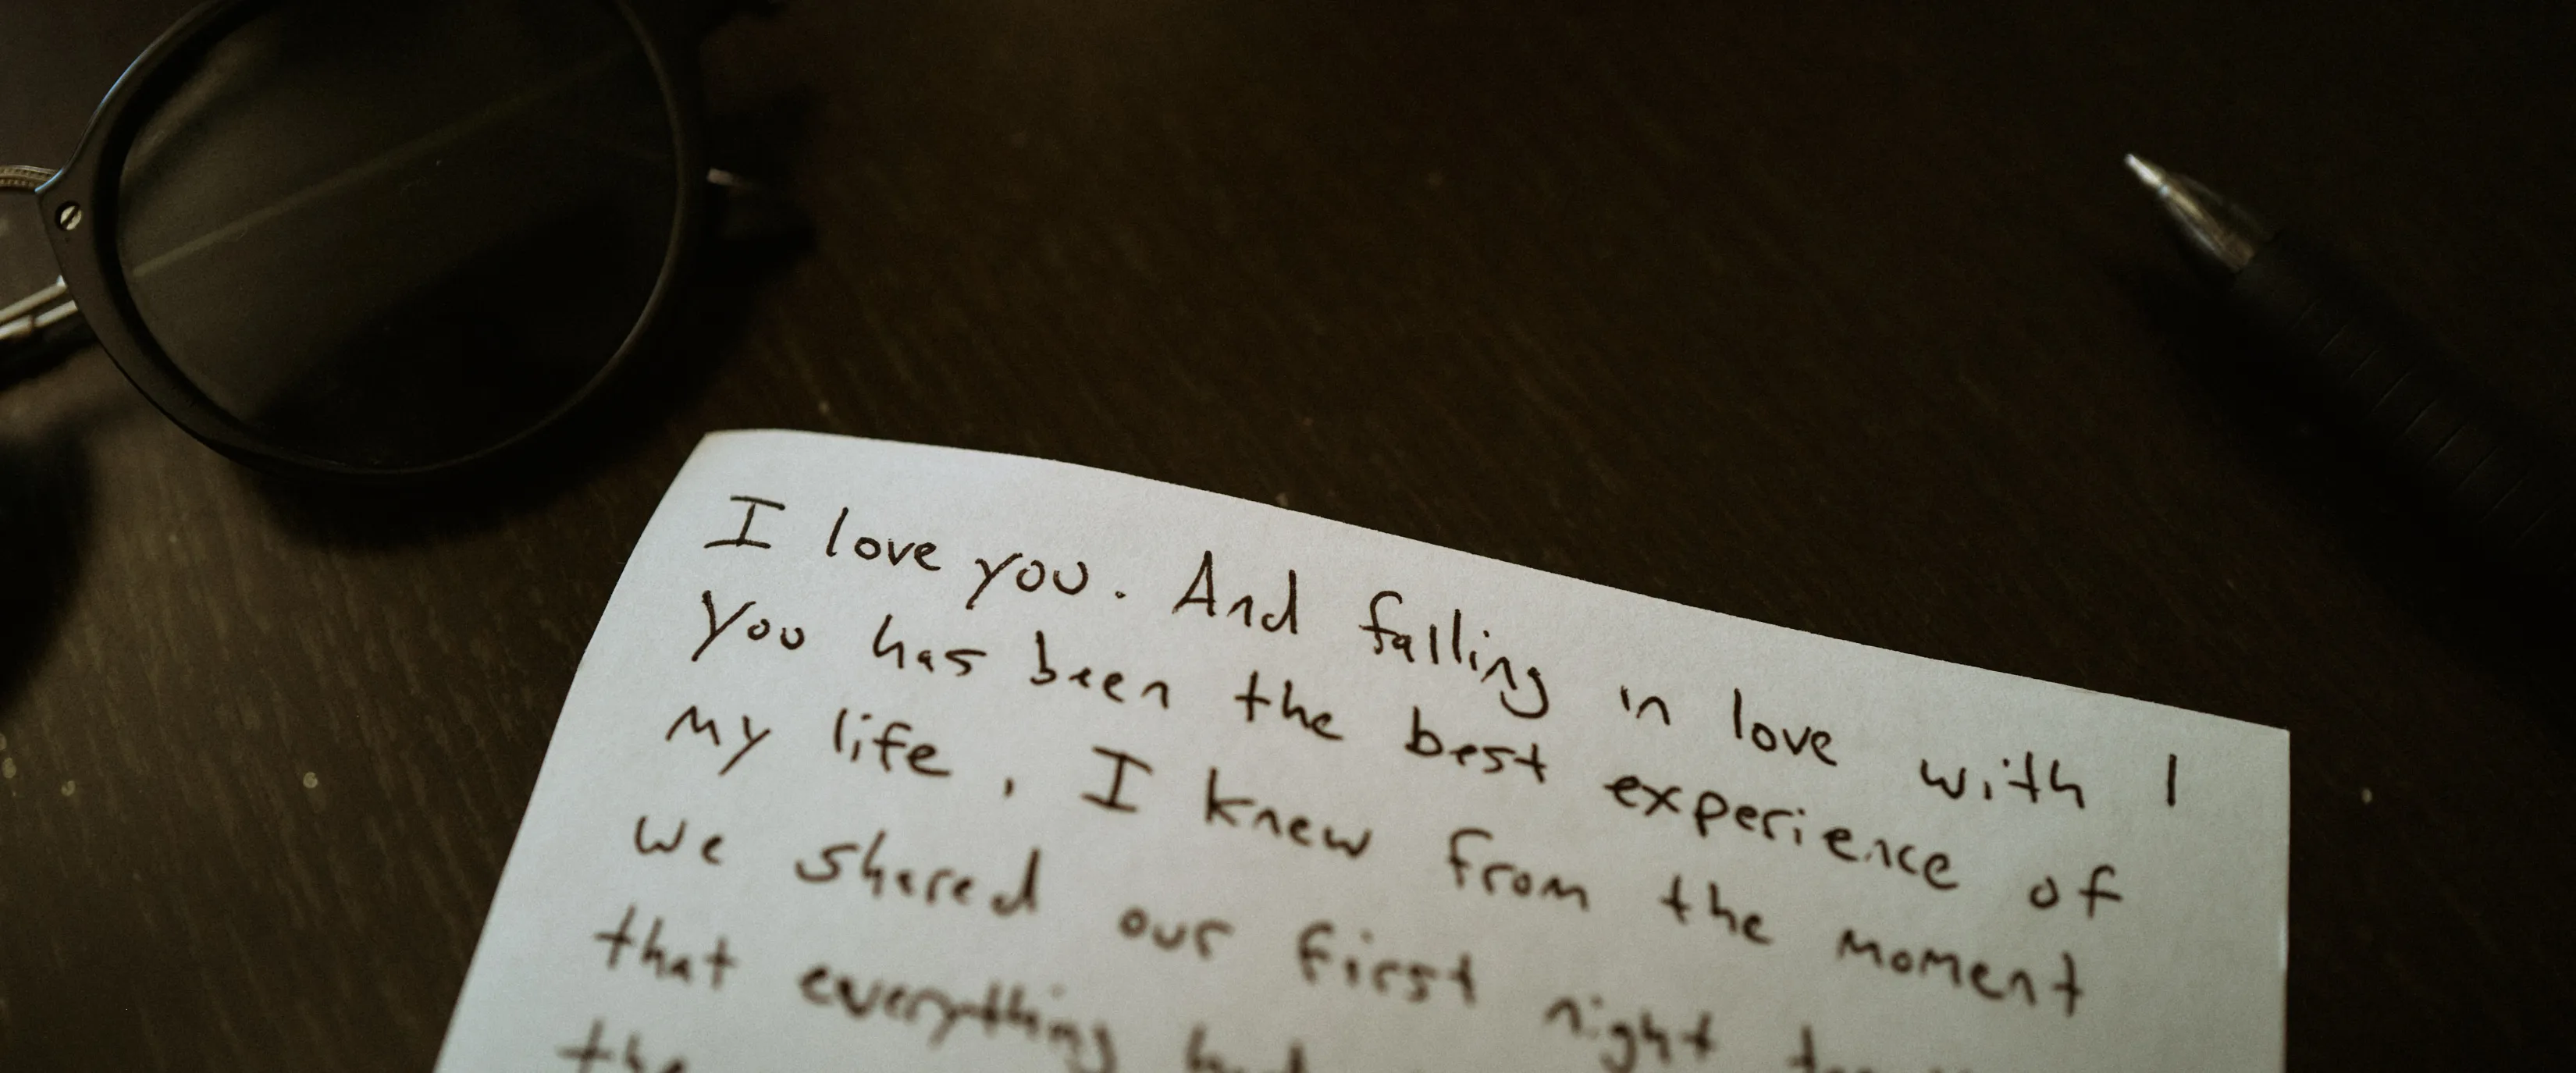 I love you. And falling in love with I
you has been the best experience of
my life, I knew from the moment
we shared our first night
that everything
the